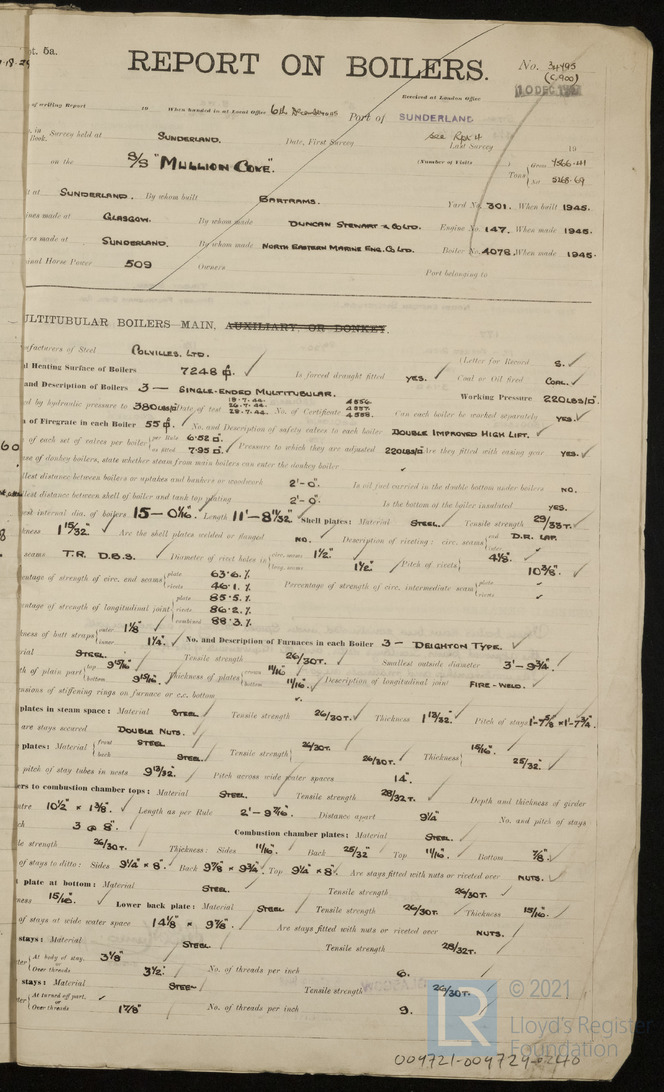 pt. 5a.
REPORT ON BOILERS.
No. 34495
(C900)
10 DEC 19
Received at London Office
of writing Report 19 When handed in at Local Office 6th December 1945 Port of SUNDERLAND
in Book. Survey held at SUNDERLAND. Date, First Survey see Rpt 4 Last Survey 19
on the S/S "MULLION COVE". (Number of Visits) Tons Gross Net
t at SUNDERLAND. By whom built BARTRAMS. Yard No. 301. When built 1945.
ines made at GLASGOW. By whom made DUNCAN STEWART & CO LTD. Engine No. 147. When made 1945.
ers made at SUNDERLAND. By whom made NORTH EASTERN MARINE ENG. CO LTD. Boiler No. 4078. When made 1945.
inal Horse Power 509 Owners Port belonging to
ULTITUBULAR BOILERS—MAIN, AUXILIARY, OR DONKEY.
nufacturers of Steel COLVILLES. LTD. (Letter for Record S. ✓
l Heating Surface of Boilers 7248 ✓ Is forced draught fitted YES. ✓ Coal or Oil fired COAL. ✓
and Description of Boilers 3 — SINGLE-ENDED MULTITUBULAR. Working Pressure 220 LBS/□".
ed by hydraulic pressure to 380 LBS/□" Date of test 19.7.44. 26.7.44. 28.7.44. No. of Certificate 4556. 4557. 4558. Can each boiler be worked separately YES. ✓
a of Firegrate in each Boiler 55 No. and Description of safety valves to each boiler DOUBLE IMPROVED HIGH LIFT. ✓
of each set of valves per boiler per Rule 6.52 □. as fitted 7.95 □. ✓ Pressure to which they are adjusted 220 LBS/□" Are they fitted with easing gear YES. ✓
ase of donkey boilers, state whether steam from main boilers can enter the donkey boiler ✓
llest distance between boilers or uptakes and bunkers or woodwork 2'-0". Is oil fuel carried in the double bottom under boilers NO.
llest distance between shell of boiler and tank top plating 2'-0". Is the bottom of the boiler insulated YES.
est internal dia. of boilers 15—0 1/16". Length 11'-8 11/32" Shell plates: Material STEEL. Tensile strength 29/33T. ✓
kness 1 15/32" Are the shell plates welded or flanged NO. Description of riveting: circ. seams end D.R. LAP.
seams T.R. D.B.S. Diameter of rivet holes in circ. seams 1 1/2" long. seams 1 1/2" Pitch of rivets 4 1/8". 10 3/8". ✓
entage of strength of circ. end seams plate 63.6.% rivets 46.1.% Percentage of strength of circ. intermediate seam plate ✓ rivets ✓
entage of strength of longitudinal joint plate 85.5.% rivets 86.2.% combined 88.3.%
ness of butt straps outer 1 1/8" inner 1 1/4". No. and Description of Furnaces in each Boiler 3 — DEIGHTON TYPE. ✓
rial STEEL. Tensile strength 26/30T. ✓ Smallest outside diameter 3'-9 3/4". ✓
th of plain part top bottom Thickness of plates crown 11/16" bottom 11/16". Description of longitudinal joint FIRE-WELD.
nsions of stiffening rings on furnace or c.c. bottom ✓
plates in steam space: Material STEEL ✓ Tensile strength 26/30T. ✓ Thickness 1 13/32" ✓ Pitch of stays 1'-7 5/8" × 1'-7 3/4".
are stays secured DOUBLE NUTS. ✓
plates: Material front STEEL back STEEL. Tensile strength 26/30T. 26/30T. ✓ Thickness 15/16". 25/32" ✓
pitch of stay tubes in nests 9 13/32". Pitch across wide water spaces 14". ✓
ers to combustion chamber tops: Material STEEL. Tensile strength 28/32T. Depth and thickness of girder
ntre 10 1/2" × 1 3/8". ✓ Length as per Rule 2'-9 7/16". ✓ Distance apart 9 1/4" ✓ No. and pitch of stays
ch 3 @ 8". Combustion chamber plates: Material STEEL. ✓
le strength 26/30T. Thickness: Sides 11/16". Back 25/32" Top 11/16". Bottom 7/8". ✓
of stays to ditto: Sides 9 1/4" × 8". Back 9 7/8" × 9 3/4". Top 9 1/4" × 8". Are stays fitted with nuts or riveted over NUTS. ✓
plate at bottom: Material STEEL. Tensile strength 26/30T. ✓
ness 15/16". Lower back plate: Material STEEL Tensile strength 26/30T. Thickness 15/16". ✓
of stays at wide water space 14 1/8" × 9 7/8". Are stays fitted with nuts or riveted over NUTS.
stays: Material STEEL. Tensile strength 28/32T.
ter At body of stay, or Over threads 3 1/8" 3 1/2". No. of threads per inch 6. ✓
stays: Material STEEL Tensile strength 26/30T.
ter At turned off part, or Over threads ✓ 1 7/8" No. of threads per inch 9.
LR
© 2021
Lloyd's Register
Foundation
004721-004729-0240